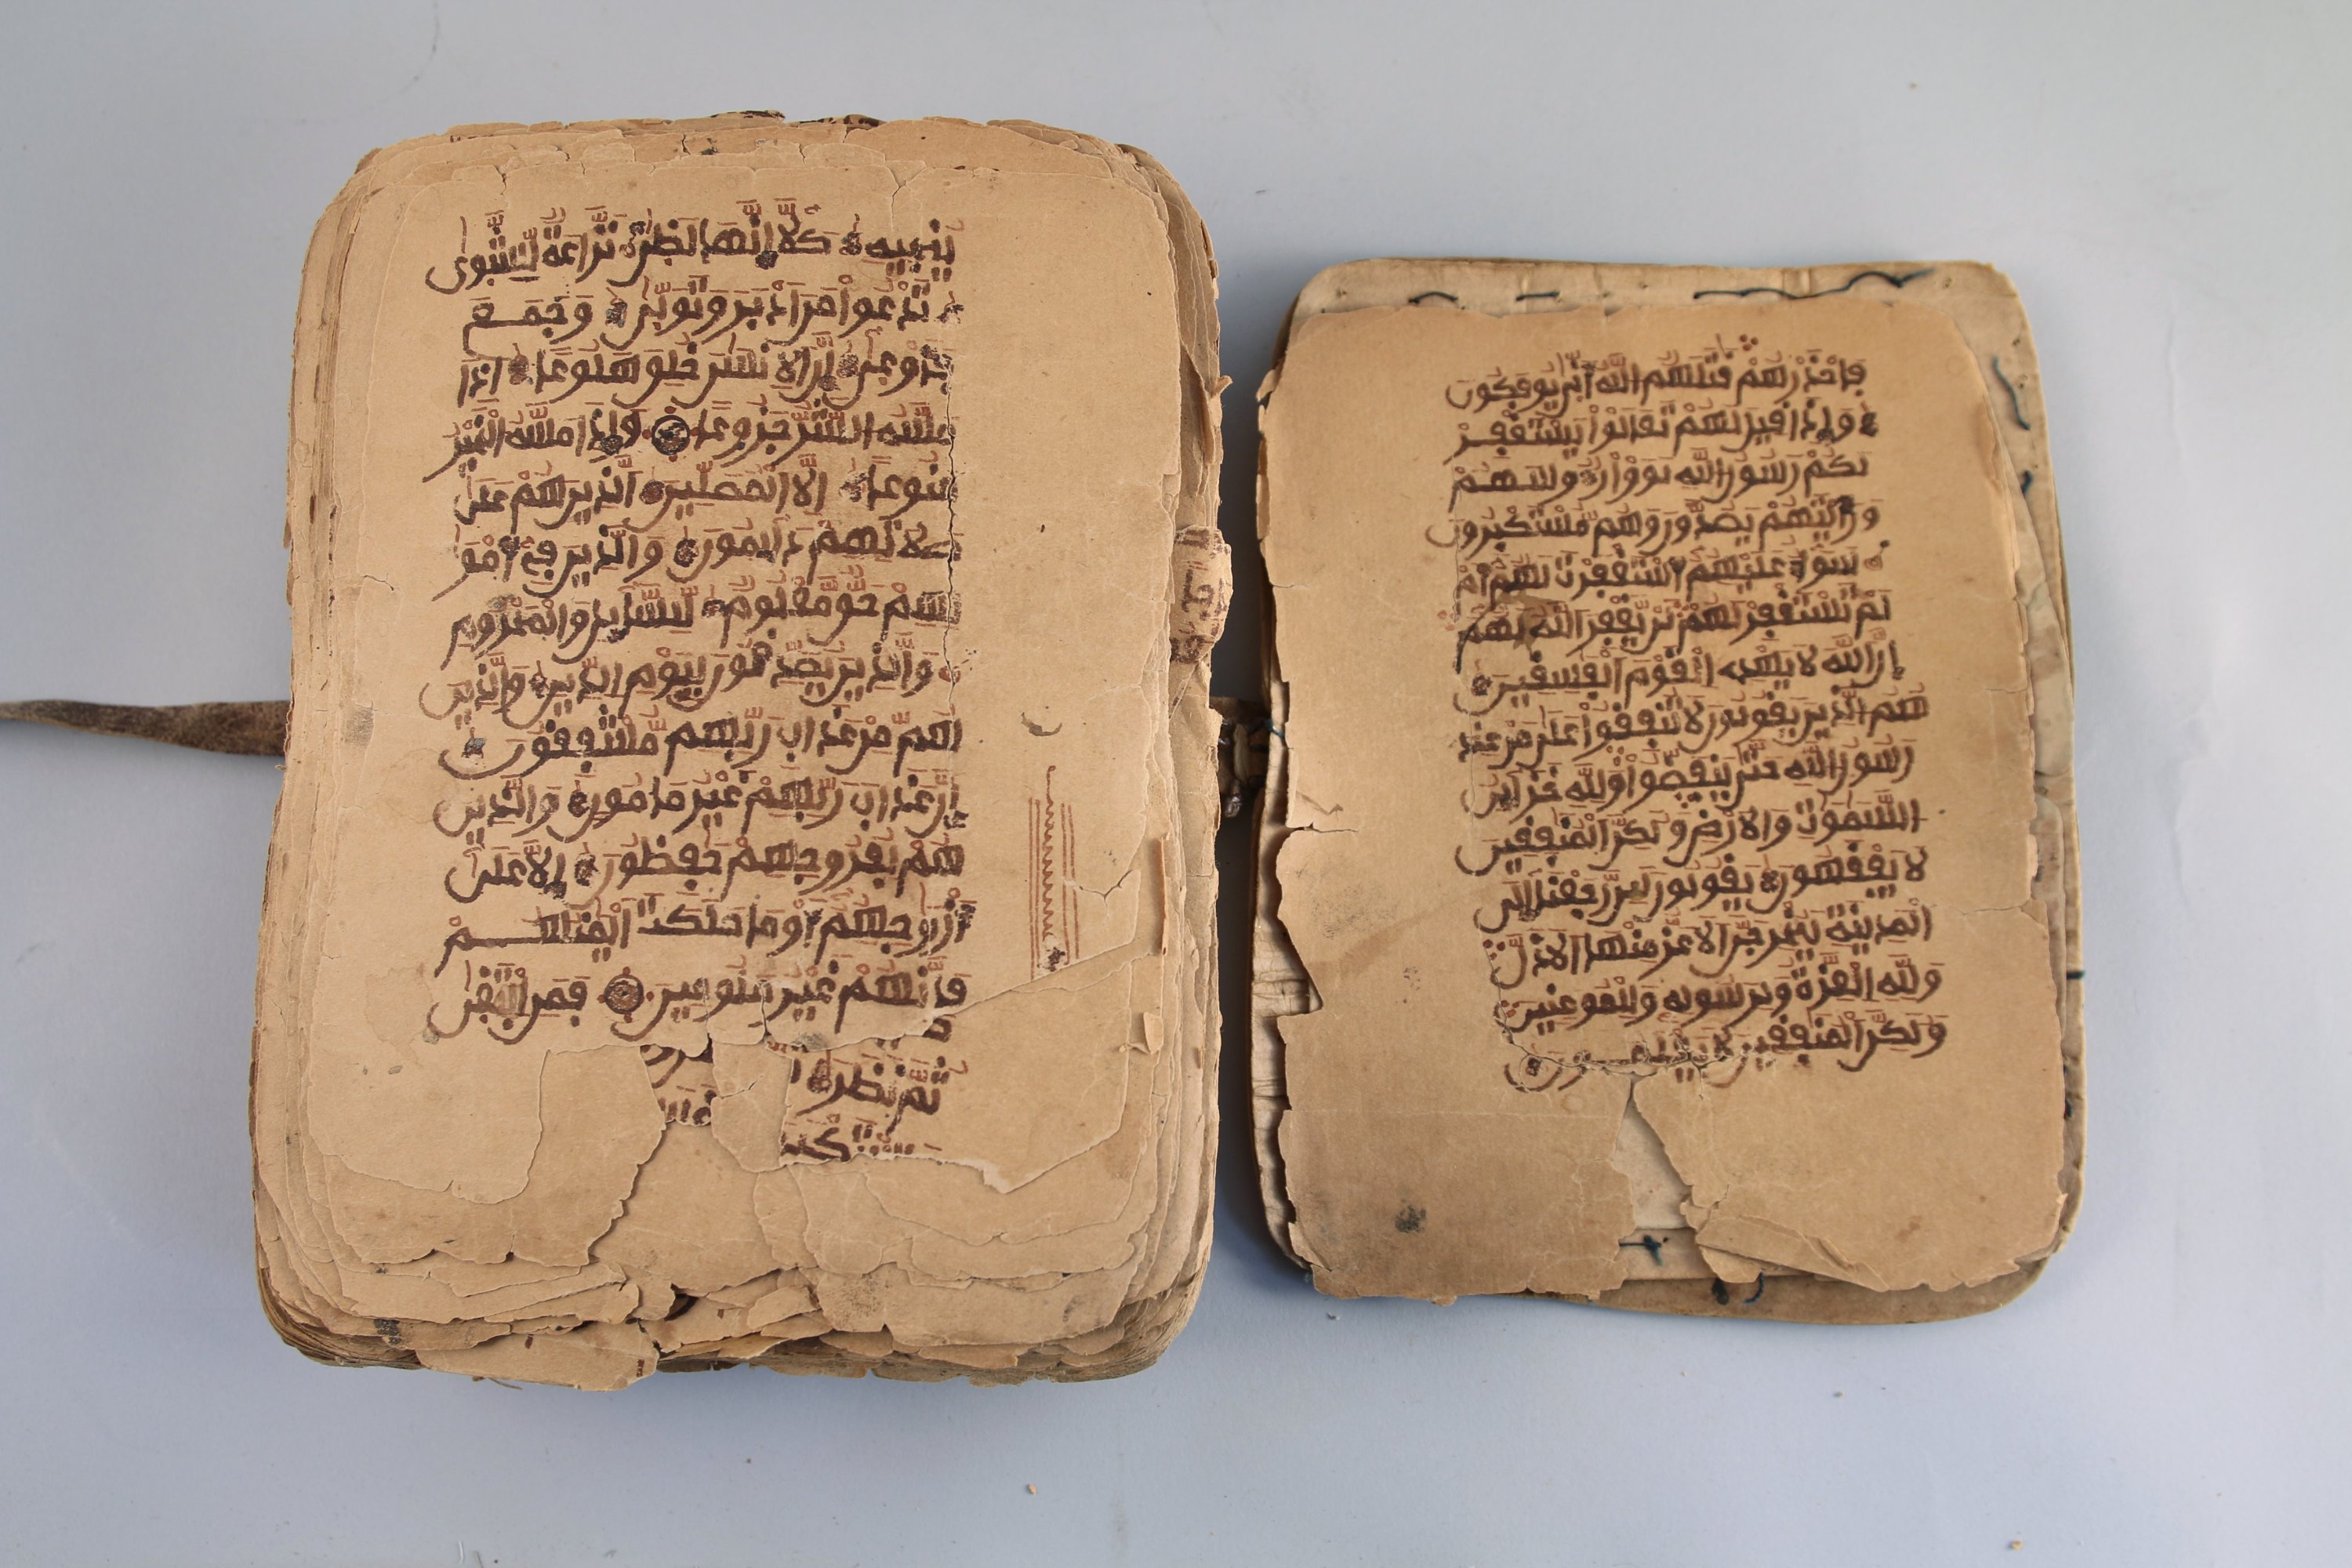 فاحذرهم قتلهم الله أنى يوفكون
وإذا قيل لهم تعالوا يستغفر
لكم رسول الله لووا روسهم
ورأيتهم يصدون وهم مستكبرون
سواء عليهم أستغفرت لهم أم
لم تستغفر لهم لن يغفر الله لهم
إن الله لا يهدي القوم الفسقين
هم الذين يقولون لا تنفقوا على من عند
رسول الله حتى ينفضوا ولله خزاين
السموت والارض ولكن المنفقين
لا يفقهون يقولون لين رجعنا إلى
المدينة ليخرجن الاعز منها الاذل
ولله العزة ولرسوله وللمومنين
ولكن المنفقين لا يعلمون
ينجيه كلا إنها لظى نزاعة للشوى
تدعوا من ادبر وتولى وجمع
فأوعى إن الانسن خلق هلوعا اذا
مسه الشر جزوعا وإذا مسه الخير
منوعا الا المصلين الذين هم على
صلاتهم دايمون والذين في أمو
لهم حق معلوم للسايل والمحروم
والذين يصدقون بيوم الدين والذين
هم من عذاب ربهم مشفقون
إن عذاب ربهم غير مامون والذين
هم لفروجهم حفظون إلا على
أزوجهم أو ما ملكت أيمنهم
فإنهم غير ملومين فمن ابتغى
ثم نظر